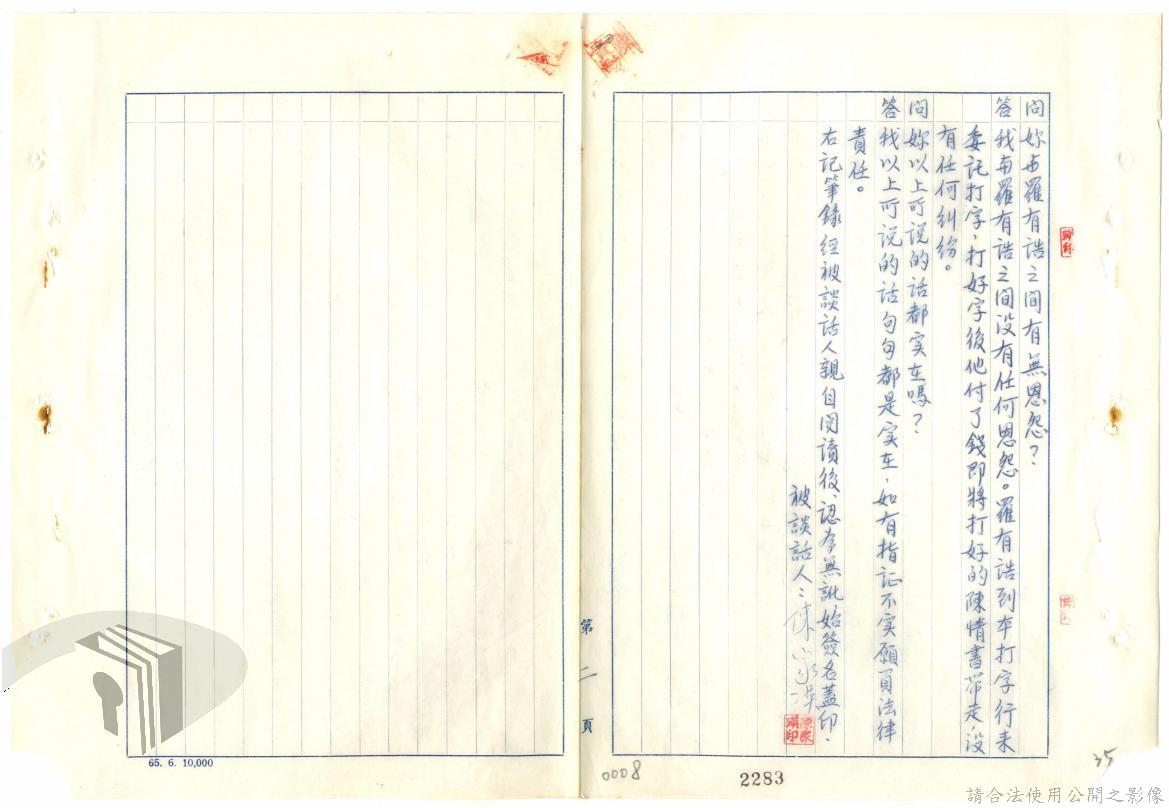 問妳与羅有誥之间有無恩怨?
答我与羅有誥之间没有任何恩怨。羅有誥到本打字行来
委託打字,打好字後他付了錢即將打好的陳情書带走,没
有任何糾纷。
问妳以上所说的话都实在嗎?
答我以上所说的话句句都是实在,如有指证不实願負法律
責任。
右記筆錄經被談話人親自閱讀後、認為無訛始簽名蓋印.
被談話人:
第二頁
65. 6. 10,000
0008
2283
35
請合法使用公開之影像